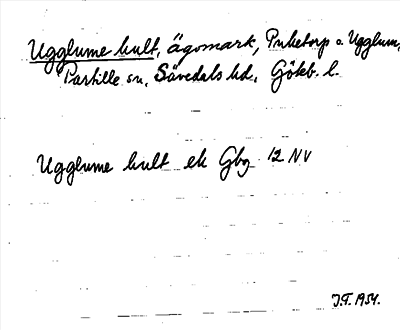 Ugglume hult, ägomark, Puketorp o. Ugglum,
Partille sn, Sävedals hd, Götb. l.
Ugglume hult ek Gbg 12 NV
J.T. 1934.